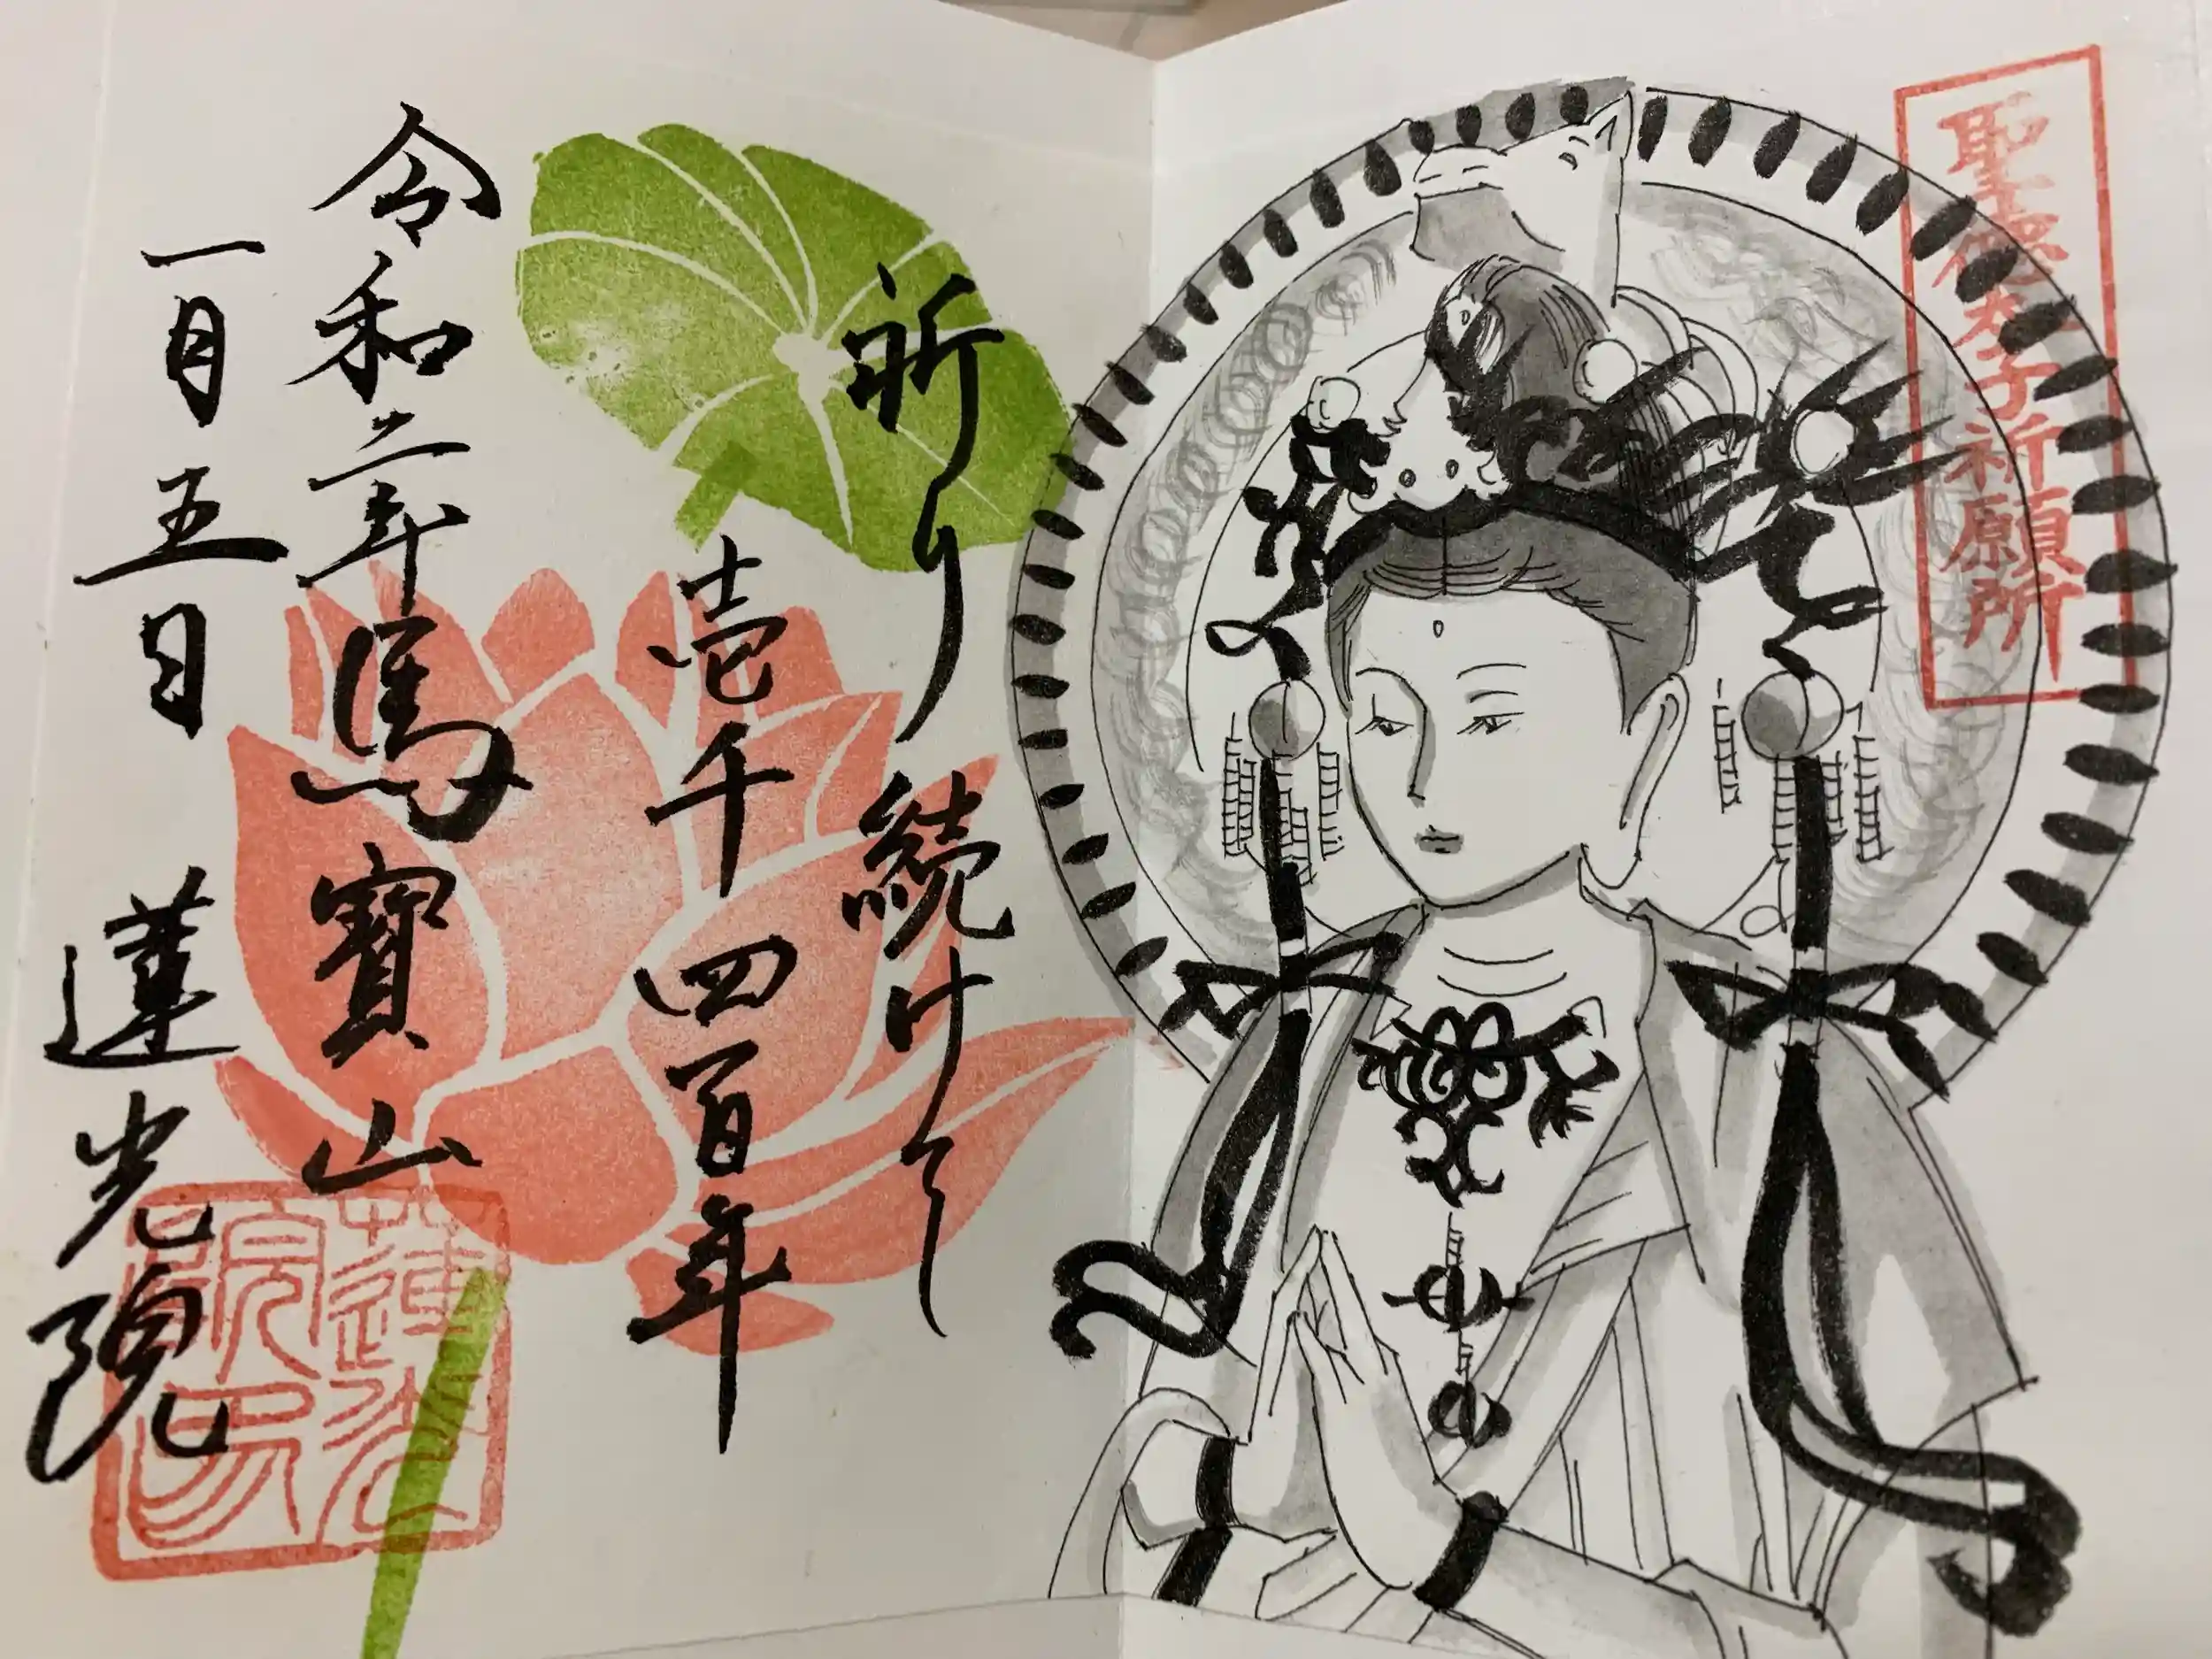 聖徳太子祈願所
祈り続けて
壱千四百年
令和二年馬寳山
一月五日 蓮光院
蓮光院印